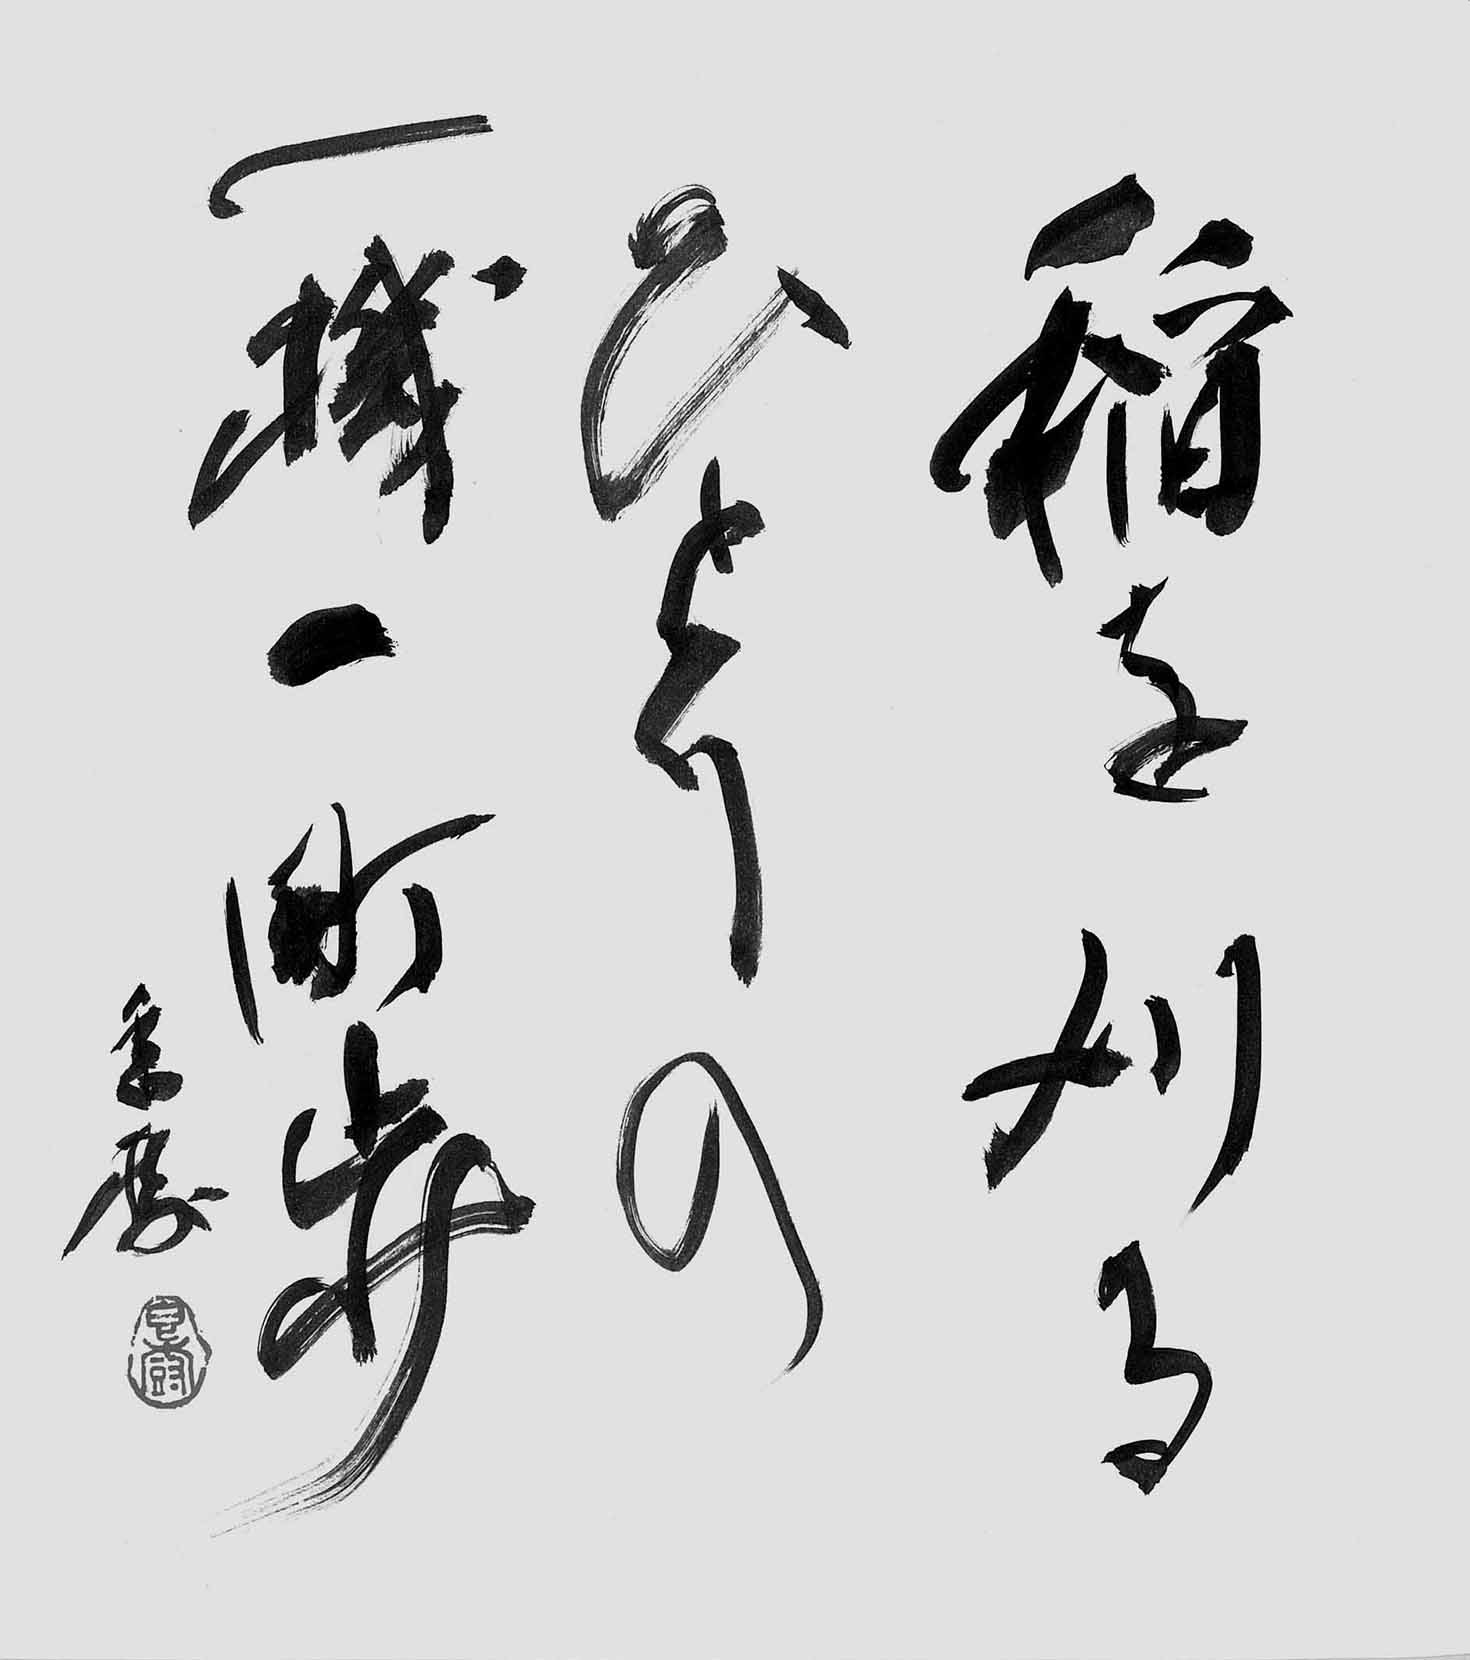 稲を刈る
ひとりの
一機一町歩